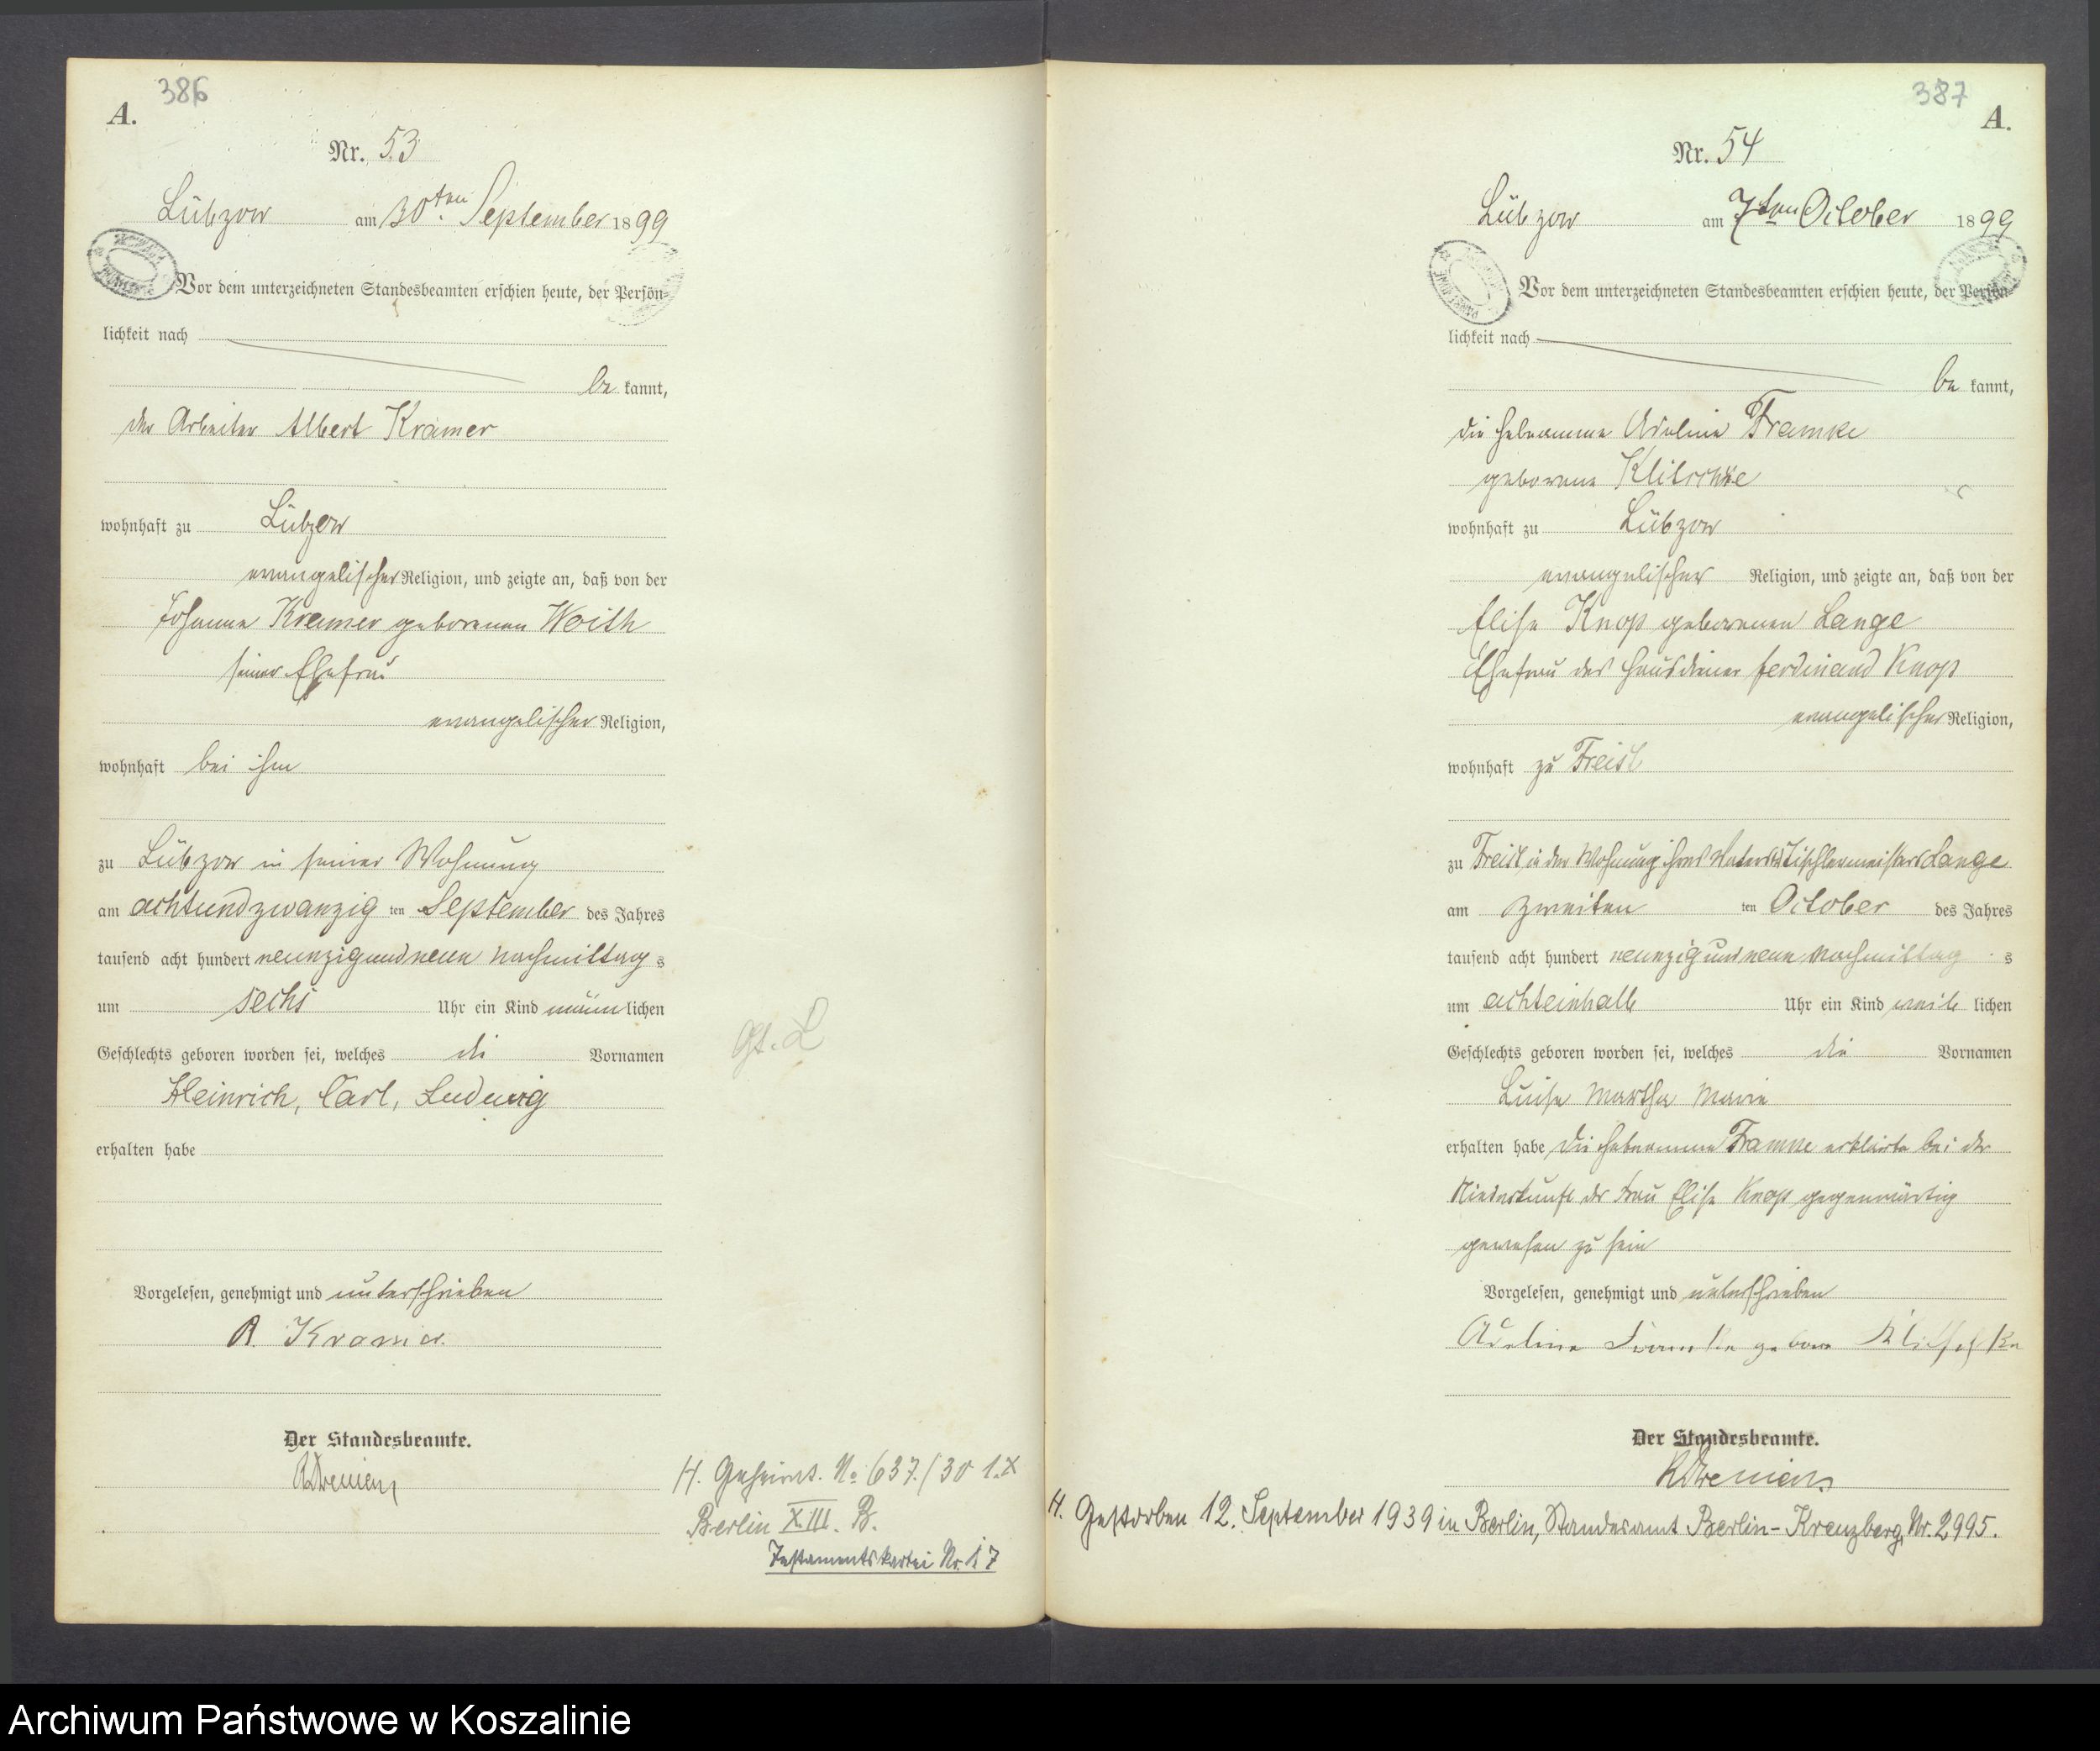 386
A.
Nr. 53
Lübzow am 30ten September 1899
Vor dem unterzeichneten Standesbeamten erschien heute, der Persön-
lichkeit nach
be kannt,
der Arbeiter Albert Kramer
wohnhaft zu Lübzow
evangelischer Religion, und zeigte an, daß von der
Johanna Kramer geborenen Woith
seiner Ehefrau
evangelischer Religion,
wohnhaft bei ihm
zu Lübzow in seiner Wohnung
am achtundzwanzig ten September des Jahres
tausend acht hundert neunzigundneun Nachmittag s
um sechs Uhr ein Kind männ lichen
Geschlechts geboren worden sei, welches die Vornamen
Heinrich, Carl, Ludwig
erhalten habe
Vorgelesen, genehmigt und unterschrieben
A. Kramer.
Der Standesbeamte.
H. Geheirat. No 637./30 1.X
Berlin XIII. B.
Testamentskartei Nr. 17
387
A.
Nr. 54
Lübzow am 7ten October 1899
Vor dem unterzeichneten Standesbeamten erschien heute, der Persön-
lichkeit nach
be kannt,
die Hebeamme Adeline Framke
geborene Klitschke
wohnhaft zu Lübzow
evangelischer Religion, und zeigte an, daß von der
Elise Knop geborenen Lange
Ehefrau des Hausdiener Ferdinand Knop
evangelischer Religion,
wohnhaft zu Freist
zu Freist in der Wohnung ihres Vaters des Tischlermeisters Lange
am zweiten ten October des Jahres
tausend acht hundert neunzigundneun Nachmittag s
um achteinhalb Uhr ein Kind weib lichen
Geschlechts geboren worden sei, welches die Vornamen
Luise Martha Marie
erhalten habe Die Hebeamme Framke erklärte bei der
Niederkunft der Frau Elise Knop gegenwärtig
gewesen zu sein
Vorgelesen, genehmigt und unterschrieben
Adeline Framke gebore Klitschke
Der Standesbeamte.
H. Gestorben 12. September 1939 in Berlin, Standesamt Berlin-Kreuzberg, Nr. 2995.
Archiwum Państwowe w Koszalinie